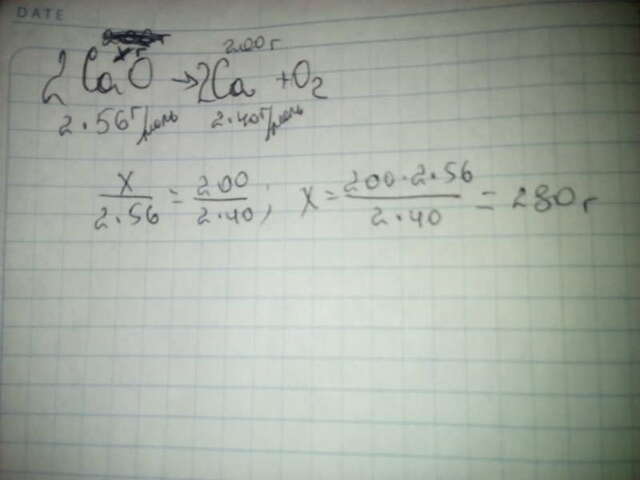 DATE
x г 200 г
2CaO → 2Ca + O2
2·56 г/моль 2·40 г/моль
x/2·56 = 200/2·40; X = 200·2·56/2·40 = 280 г